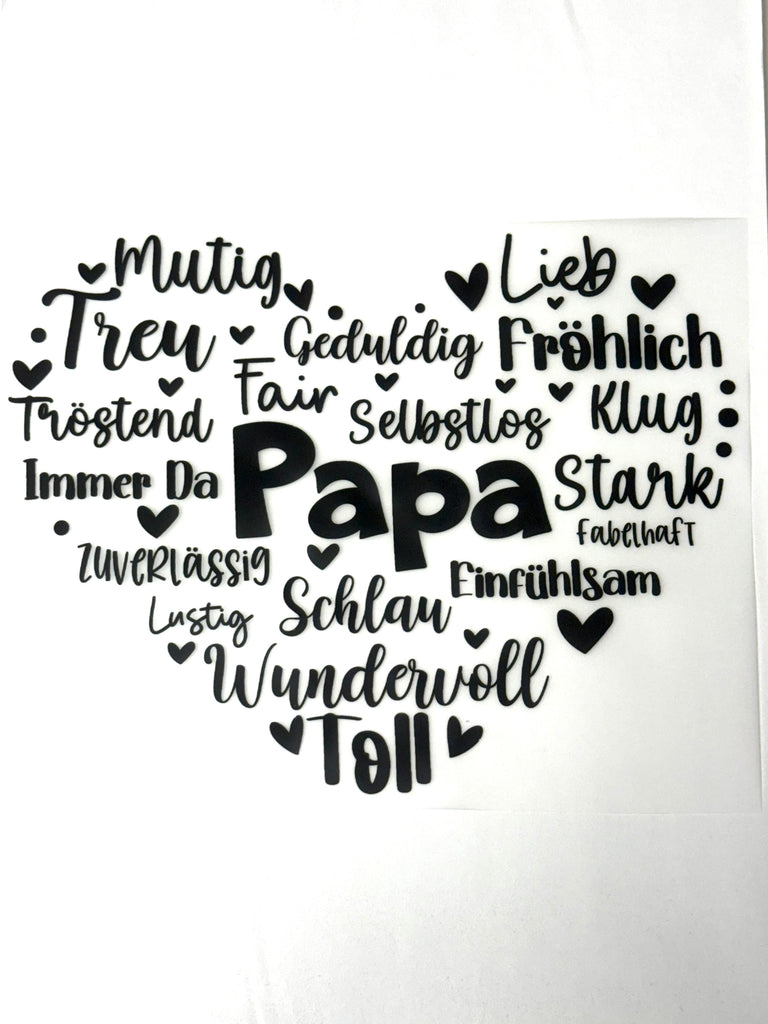 Mutig
Lieb
Treu
Geduldig
Fröhlich
Fair
Tröstend
Selbstlos
Klug
Immer Da
Papa
Stark
fabelhaft
zuverlässig
Einfühlsam
Lustig
Schlau
Wundervoll
Toll